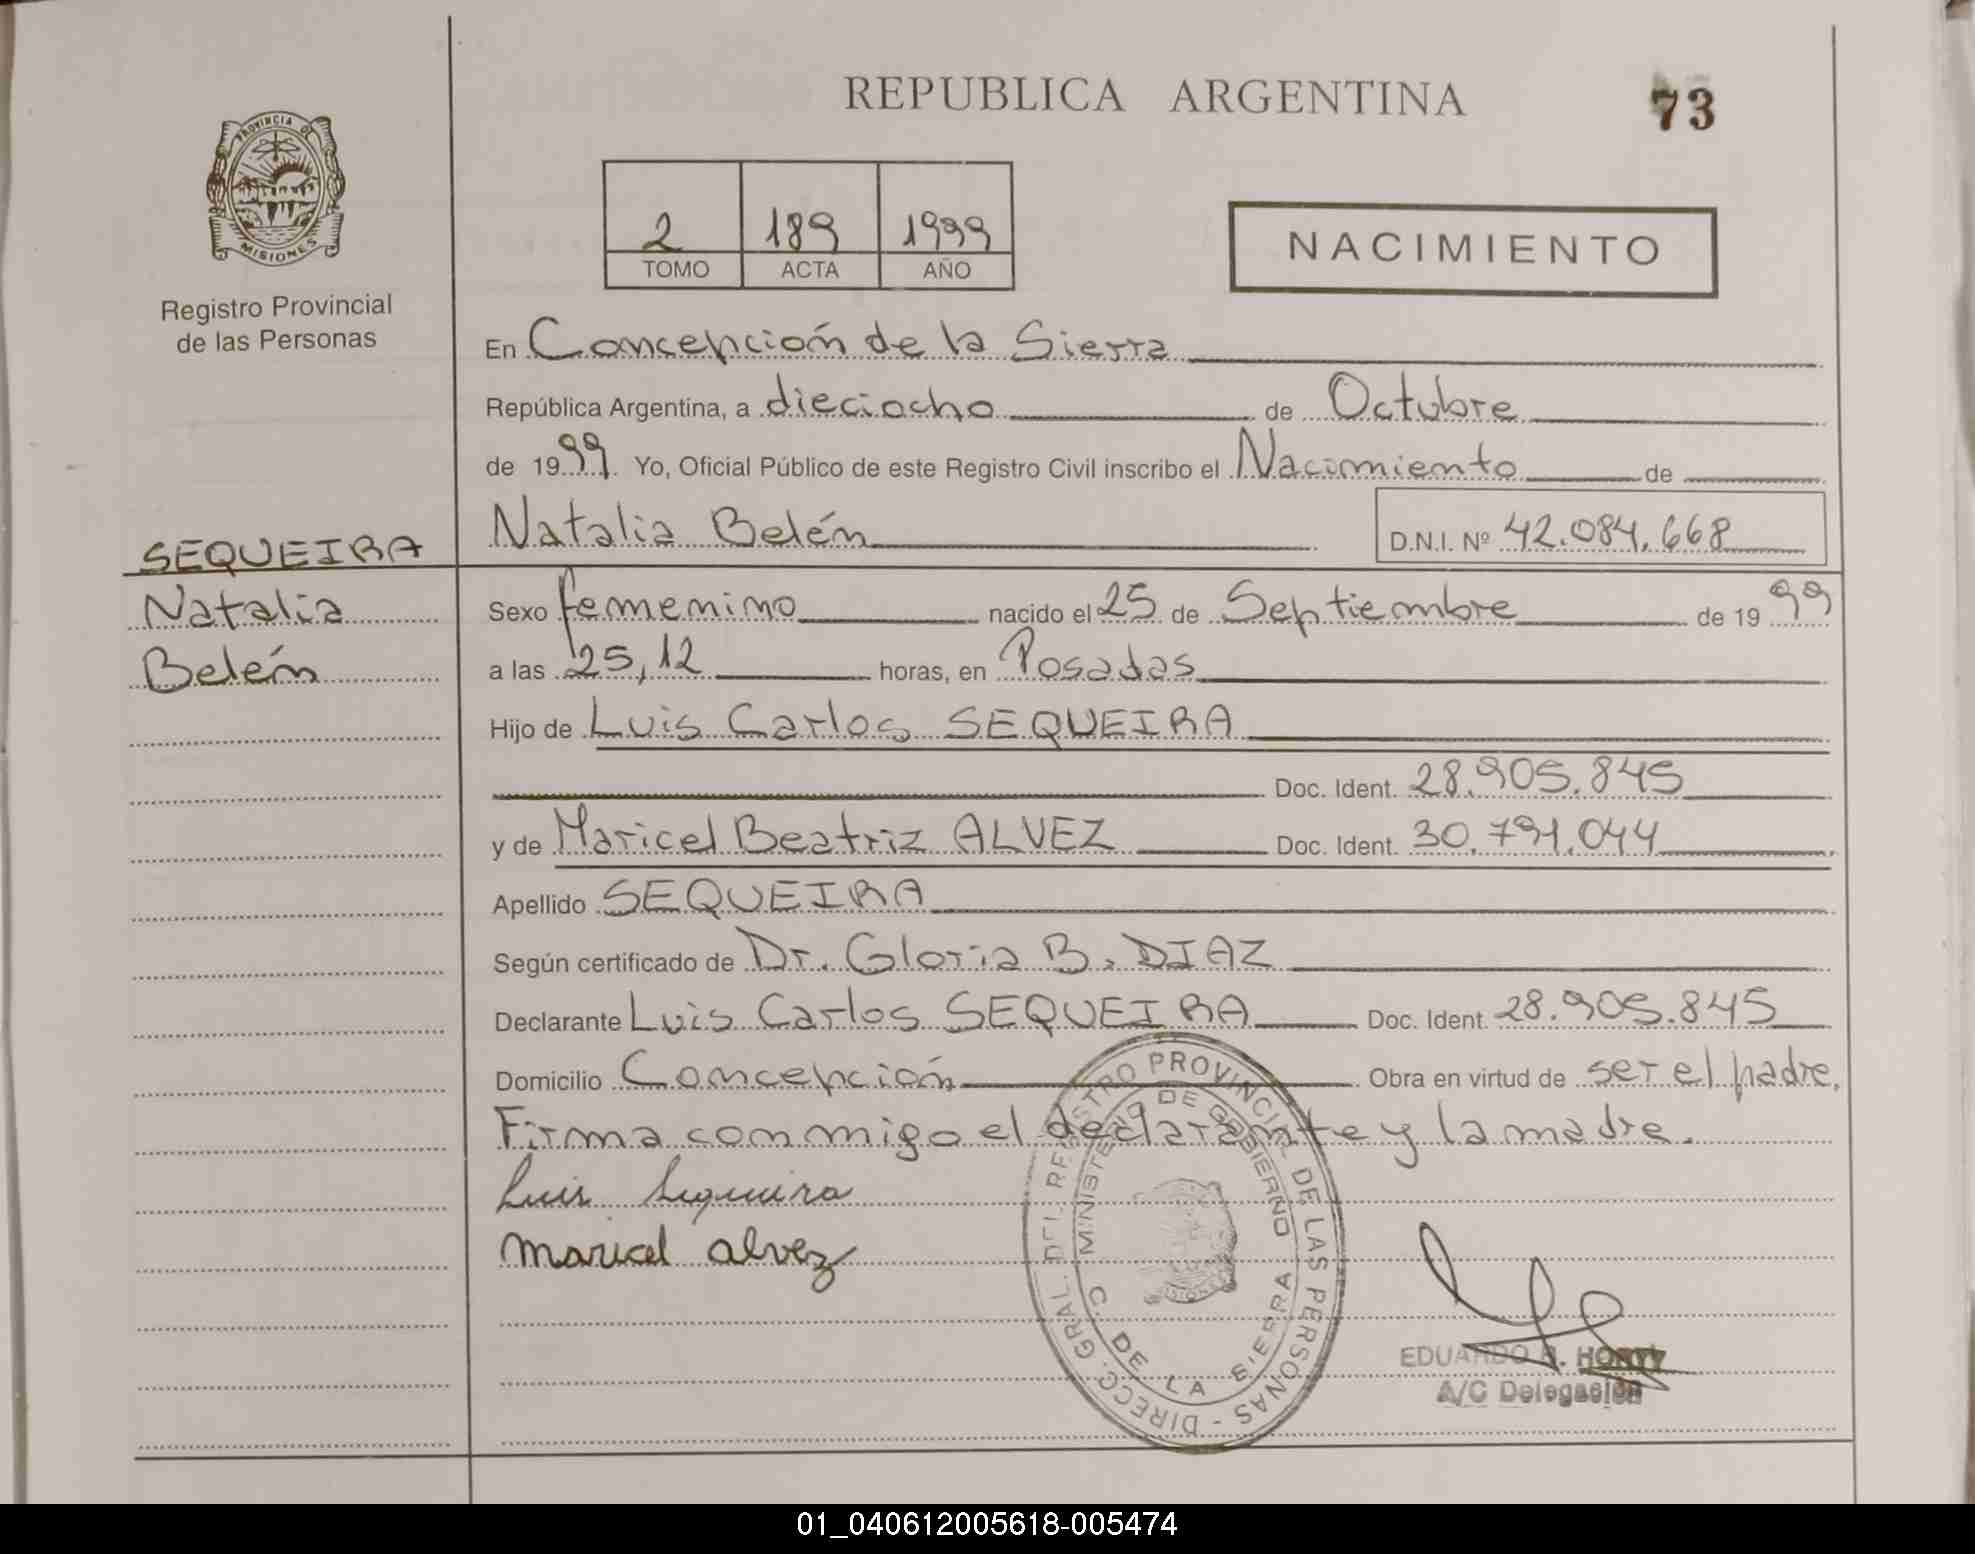 REPUBLICA ARGENTINA
73
PROVINCIA DE
MISIONES
Registro Provincial
de las Personas
2 189 1999
TOMO ACTA AÑO
NACIMIENTO
En Concepción de la Sierra
República Argentina, a dieciocho de Octubre
de 1999 Yo, Oficial Público de este Registro Civil inscribo el Nacimiento de
Natalia Belén D.N.I. Nº 42.084.668
SEQUEIRA
Natalia
Belén
Sexo femenino nacido el 25 de Septiembre de 1999
a las 25,12 horas, en Posadas
Hijo de Luis Carlos SEQUEIRA
Doc. Ident. 28.905.845
y de Maricel Beatriz ALVEZ Doc. Ident. 30.791.044
Apellido SEQUEIRA
Según certificado de Dr. Gloria B. DIAZ
Declarante Luis Carlos SEQUEIRA Doc. Ident. 28.905.845
Domicilio Concepción Obra en virtud de ser el padre.
Firma conmigo el declarante y la madre.
Luis Sequeira
maricel alvez
DIRECC. GRAL. DEL REGISTRO PROVINCIAL DE LAS PERSONAS -
MINISTERIO DE GOBIERNO
C. DE LA SIERRA
EDUARDO
A/C Delegación
01_040612005618-005474